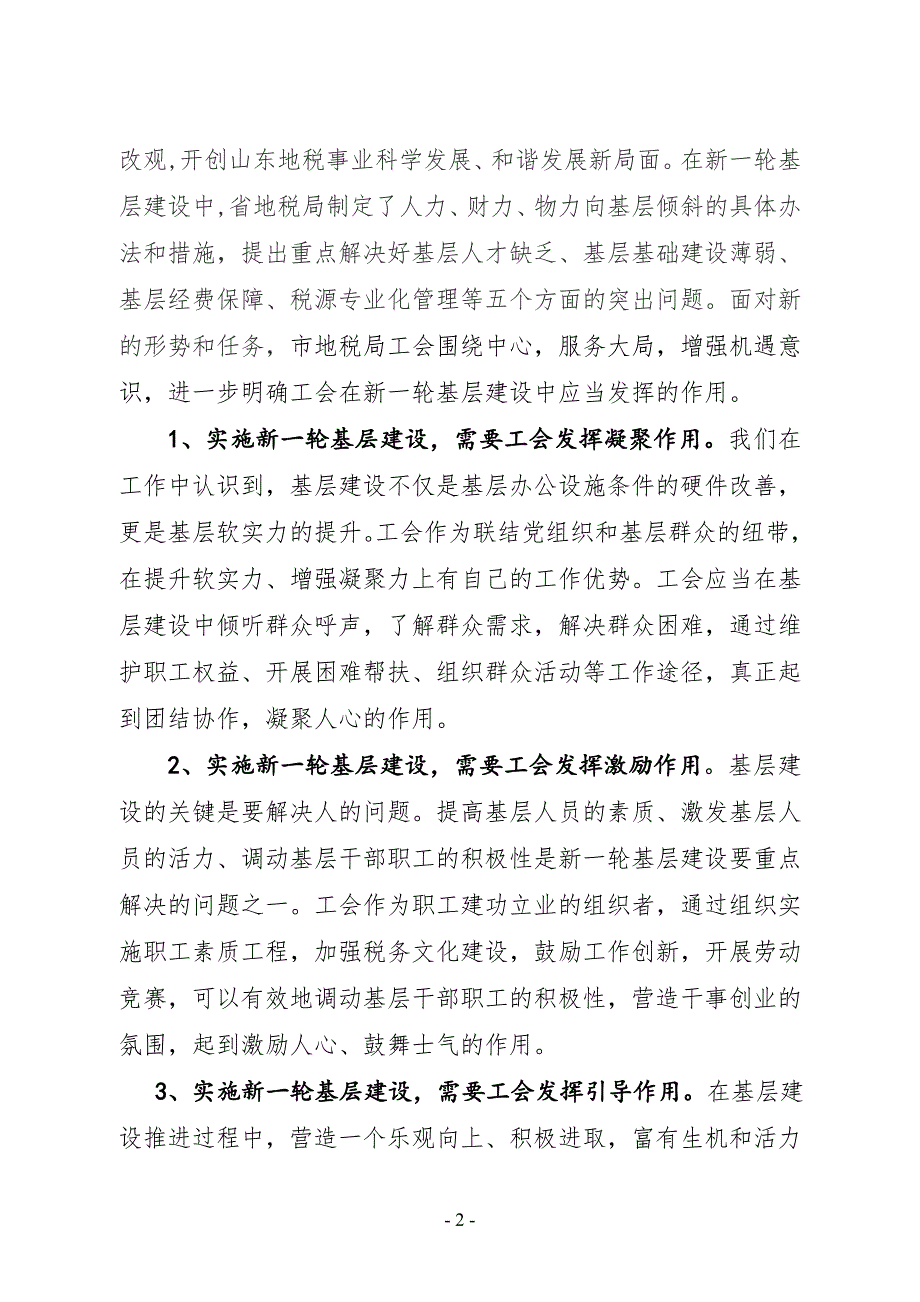 改观,开创山东地税事业科学发展、和谐发展新局面。在新一轮基
层建设中,省地税局制定了人力、财力、物力向基层倾斜的具体办
法和措施，提出重点解决好基层人才缺乏、基层基础建设薄弱、
基层经费保障、税源专业化管理等五个方面的突出问题。面对新
的形势和任务，市地税局工会围绕中心，服务大局，增强机遇意
识，进一步明确工会在新一轮基层建设中应当发挥的作用。
1、实施新一轮基层建设，需要工会发挥凝聚作用。我们在
工作中认识到，基层建设不仅是基层办公设施条件的硬件改善，
更是基层软实力的提升。工会作为联结党组织和基层群众的纽带，
在提升软实力、增强凝聚力上有自己的工作优势。工会应当在基
层建设中倾听群众呼声，了解群众需求，解决群众困难，通过维
护职工权益、开展困难帮扶、组织群众活动等工作途径，真正起
到团结协作，凝聚人心的作用。
2、实施新一轮基层建设，需要工会发挥激励作用。基层建
设的关键是要解决人的问题。提高基层人员的素质、激发基层人
员的活力、调动基层干部职工的积极性是新一轮基层建设要重点
解决的问题之一。工会作为职工建功立业的组织者，通过组织实
施职工素质工程，加强税务文化建设，鼓励工作创新，开展劳动
竞赛，可以有效地调动基层干部职工的积极性，营造干事创业的
氛围，起到激励人心、鼓舞士气的作用。
3、实施新一轮基层建设，需要工会发挥引导作用。在基层建
设推进过程中，营造一个乐观向上、积极进取，富有生机和活力
- 2 -